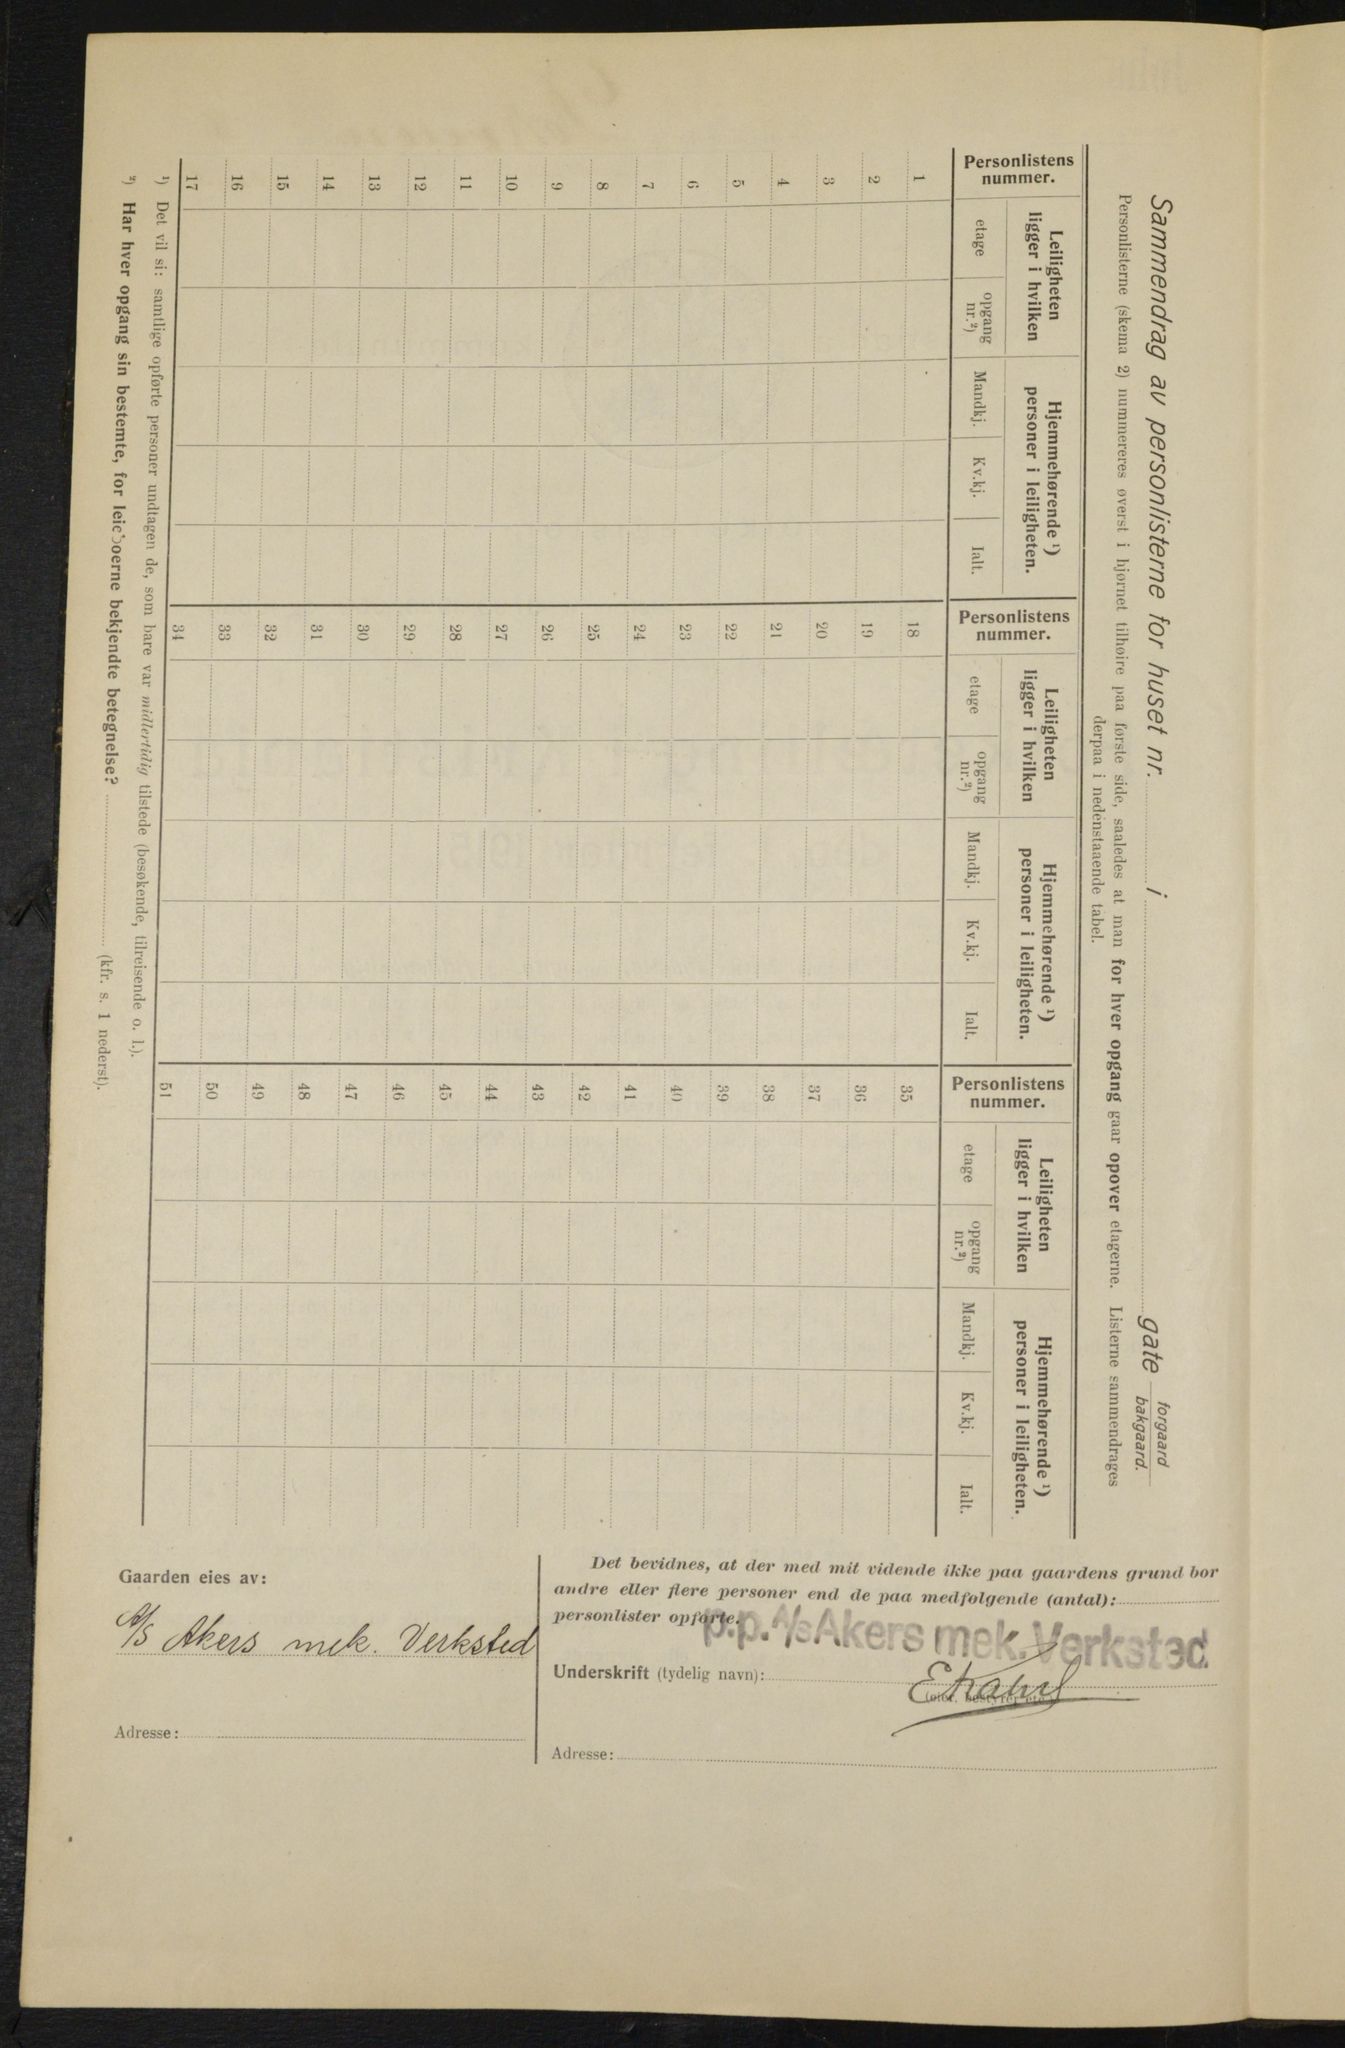 Sammendrag av personlisterne for huset nr. i gate forgaard bakgaard.
Personlisterne (skema 2) nummereres øverst i hjørnet tilhøire paa første side, saaledes at man for hver opgang gaar opover etagerne. Listerne sammendrages
derpaa i nedenstaaende tabel.
Personlistens nummer.
Leiligheten ligger i hvilken
etage
opgang nr.²)
Hjemmehørende ¹) personer i leiligheten.
Mandkj.
Kv.kj.
Ialt.
1
2
3
4
5
6
7
8
9
10
11
12
13
14
15
16
17
Personlistens nummer.
Leiligheten ligger i hvilken
etage
opgang nr.²)
Hjemmehørende ¹) personer i leiligheten.
Mandkj.
Kv.kj.
Ialt.
18
19
20
21
22
23
24
25
26
27
28
29
30
31
32
33
34
Personlistens nummer.
Leiligheten ligger i hvilken
etage
opgang nr.²)
Hjemmehørende ¹) personer i leiligheten.
Mandkj.
Kv.kj.
Ialt.
35
36
37
38
39
40
41
42
43
44
45
46
47
48
49
50
51
¹) Det vil si: samtlige opførte personer undtagen de, som bare var midlertidig tilstede (besøkende, tilreisende o. l.).
²) Har hver opgang sin bestemte, for leieboerne bekjendte betegnelse? (kfr. s. 1 nederst).
Gaarden eies av:
A/S Akers mek. Verksted
Adresse:
Det bevidnes, at der med mit vidende ikke paa gaardens grund bor
andre eller flere personer end de paa medfølgende (antal):
personlister opførte.
p.p. A/S Akers mek. Verksted
Underskrift (tydelig navn):
(eier, bestyrer etc.)
Adresse: